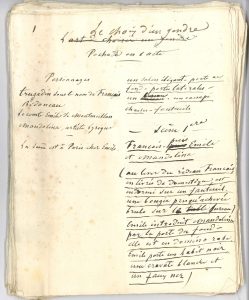 1
Le choix d'un gendre
L'art choisir un gendre
Pochade en un acte
Personnages
Trugadin sous le nom de François
Bidonneau
Le comte Emile de
Mandoline artiste lyrique
La scène est à Paris chez Emile
un salon élégant - porte au
fond - porte latérales -
un canapé
chaises fauteuils
Scène 1ère
François Emile
et Mandoline
(au lever du rideau François
en livrée de domestique est
endormi sur un fauteuil
une bougie presqu'achevée
brule sur
Emile introduit Mandoline
par la porte du fond -
elle est en domino rose
Emile porte un habit noir
une cravate blanche et
un faux nez)